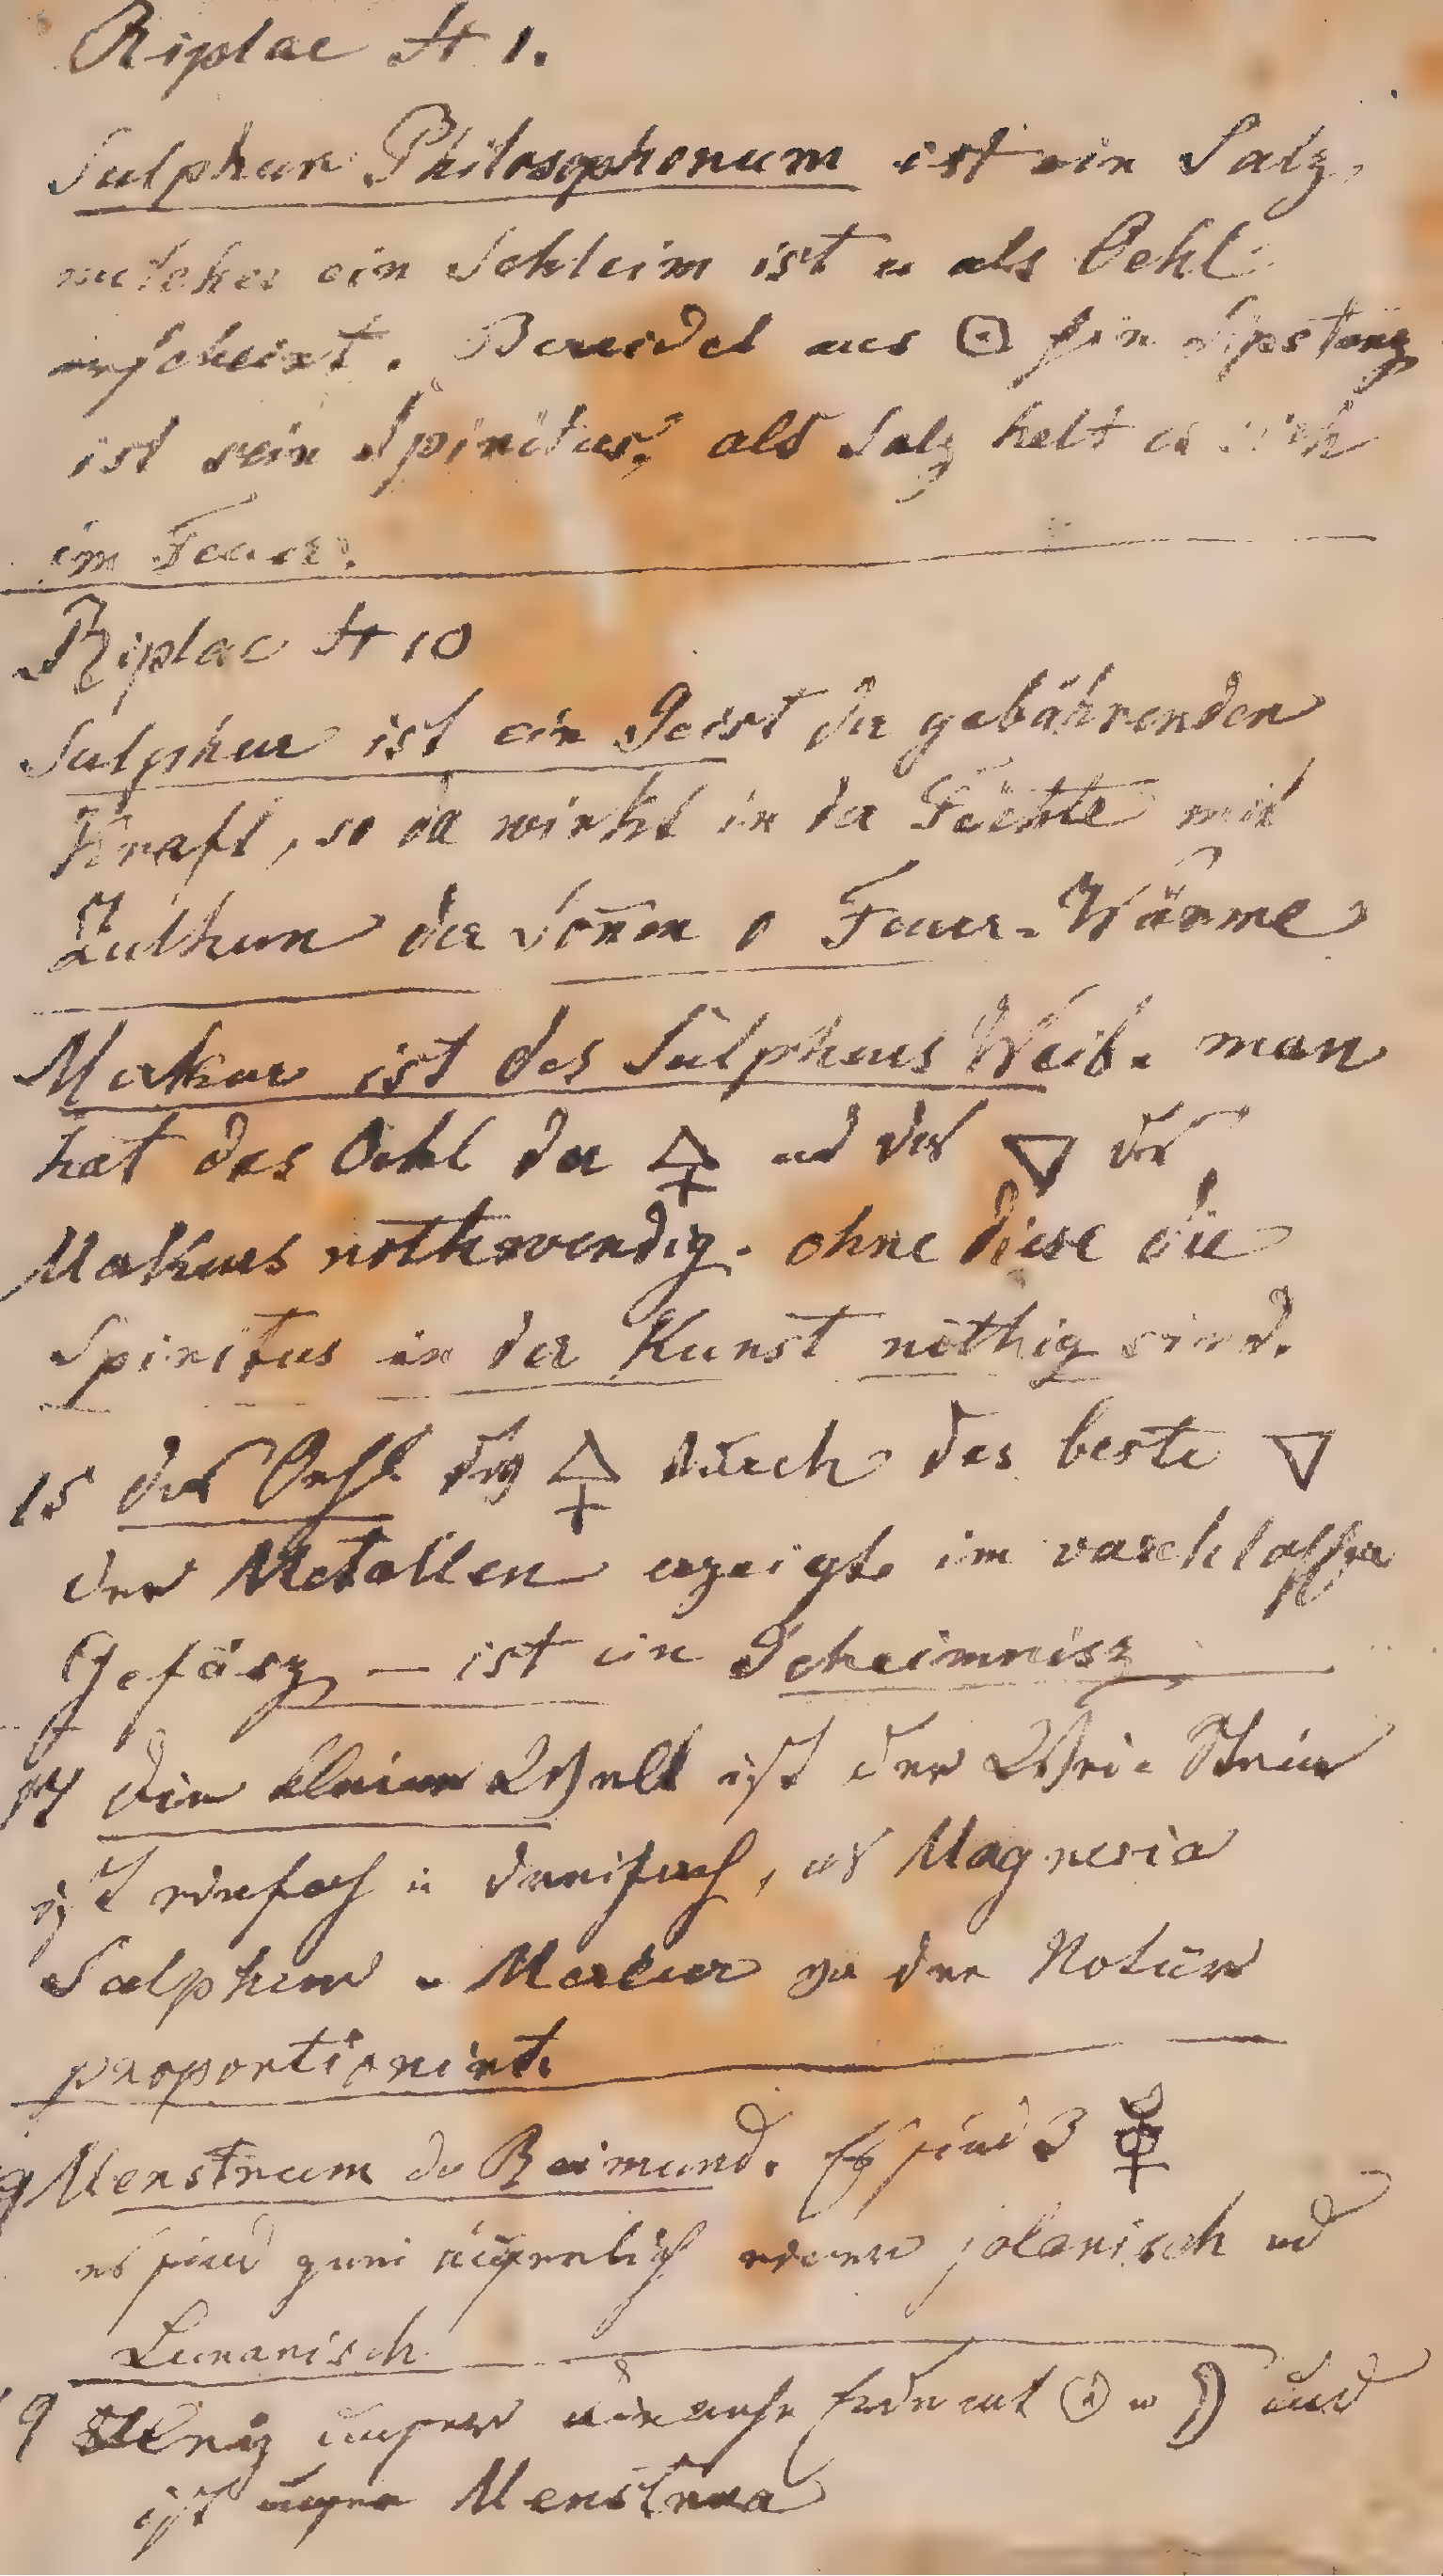 Riplae St 1.
Sulphur Philosophorum ist ein Salz,
welches ein Schleim ist u als Oehl
erscheint. Bereidet aus ☉ sein
ist sein Spiritus, als Salz helt es sich
im Feuer.
Riplae St 10
Sulphur ist ein Geist der gebährenden
Kraft, so da wirkt in der Feüchte mit
Zuthun der Soñen o Feuer-Wärme
Merkur ist des Sulphurs Weib. man
hat das Oehl der 🜍 und das 🜄 des
Merkurs nothwendig. ohne diese die
Spiritus in der Kunst nöthig sind.
15 das Oehl des 🜍 durch das beste 🜄
der Metallen erzeigt. im
Gefäsz — ist ein Geheimnisz
17 die kleine Welt ist der Stein
ist einfach u dreifach, als Magnesia
Sulphur u Merkur zu der Natur
proportionirt.
9 Menstruum de Raimund. Es sind 3 ☿
es sind zwei äußerlich einer solarisch ud
Lunarisch
19 unser Erde mit ☉ u ☽ und
ist unser Menstrua